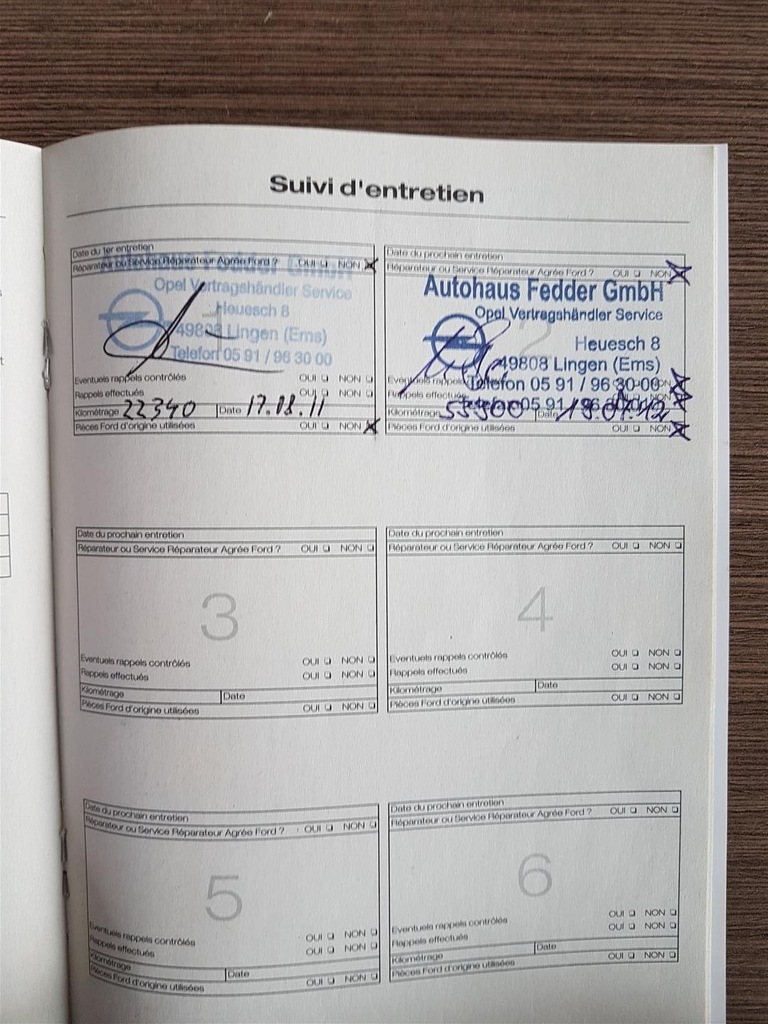 Suivi d'entretien
Date du 1er entretien
Réparateur ou Service Réparateur Agrée Ford ? OUI NON
Autohaus Fedder GmbH
Opel Vertragshändler Service
Heuesch 8
49808 Lingen (Ems)
Telefon 05 91 / 96 30 00
Eventuels rappels contrôlés OUI NON
Rappels effectués OUI NON
Kilométrage 22340 Date 17.08.11
Pièces Ford d'origine utilisées OUI NON
Date du prochain entretien
Réparateur ou Service Réparateur Agrée Ford ? OUI NON
Autohaus Fedder GmbH
Opel Vertragshändler Service
2
Heuesch 8
49808 Lingen (Ems)
Eventuels rappels Telefon 05 91 / 96 30-00
Rappels 05 91 / 96
Kilométrage Date
Pièces Ford d'origine utilisées OUI NON
Date du prochain entretien
Réparateur ou Service Réparateur Agrée Ford ? OUI NON
3
Eventuels rappels contrôlés OUI NON
Rappels effectués OUI NON
Kilométrage Date
Pièces Ford d'origine utilisées OUI NON
Date du prochain entretien
Réparateur ou Service Réparateur Agrée Ford ? OUI NON
4
Eventuels rappels contrôlés OUI NON
Rappels effectués OUI NON
Kilométrage Date
Pièces Ford d'origine utilisées OUI NON
Date du prochain entretien
Réparateur ou Service Réparateur Agrée Ford ? OUI NON
5
Eventuels rappels contrôlés OUI NON
Rappels effectués OUI NON
Kilométrage Date
Pièces Ford d'origine utilisées OUI NON
Date du prochain entretien
Réparateur ou Service Réparateur Agrée Ford ? OUI NON
6
Eventuels rappels contrôlés OUI NON
Rappels effectués OUI NON
Kilométrage Date
Pièces Ford d'origine utilisées OUI NON